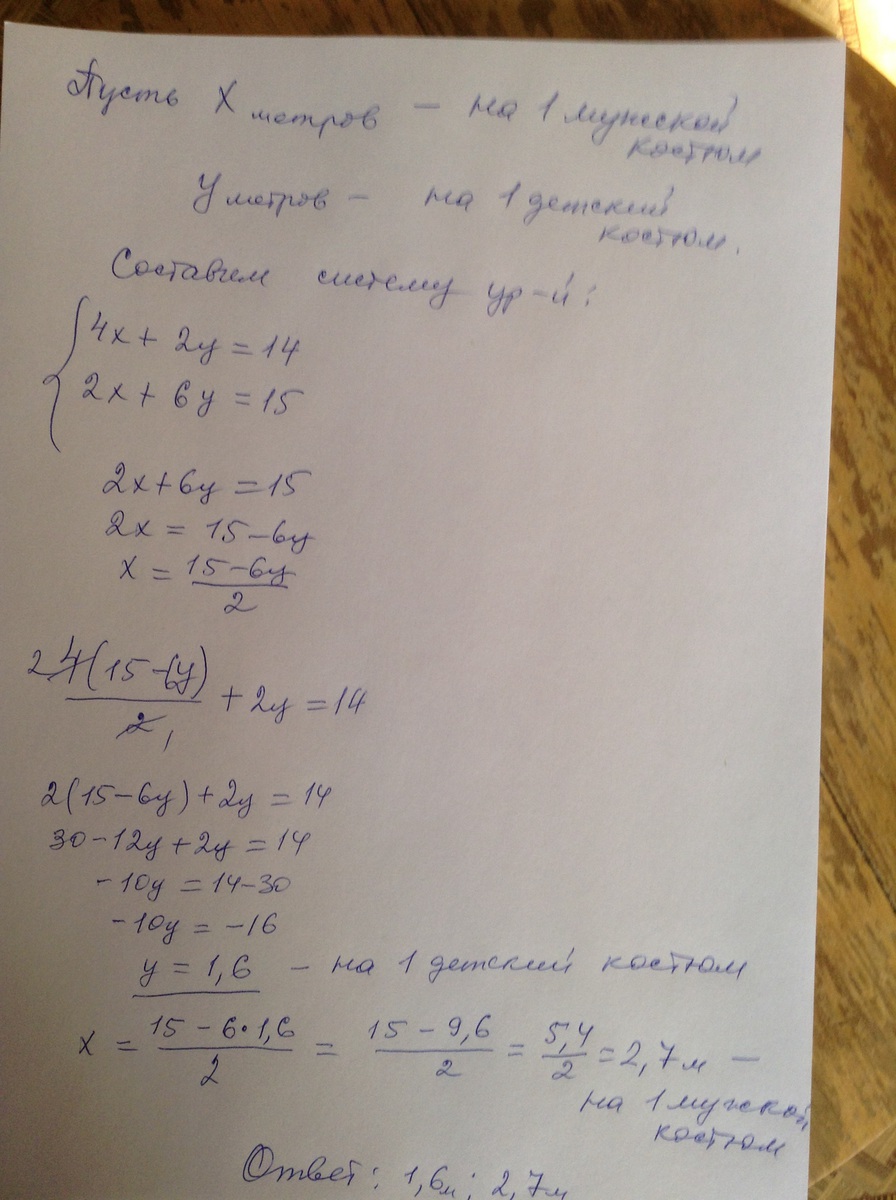 Пусть X метров — на 1 мужской
костюм
У метров — на 1 детский
костюм.
Составим систему ур-й:
{4x + 2y = 14
2x + 6y = 15
2x + 6y = 15
2x = 15 - 6y
x = (15 - 6y)/2
2 4(15 - 6y)/2 1 + 2y = 14
2(15 - 6y) + 2y = 14
30 - 12y + 2y = 14
-10y = 14 - 30
-10y = -16
y = 1,6 — на 1 детский костюм
x = (15 - 6·1,6)/2 = (15 - 9,6)/2 = 5,4/2 = 2,7 м —
на 1 мужской
костюм
Ответ: 1,6м; 2,7м